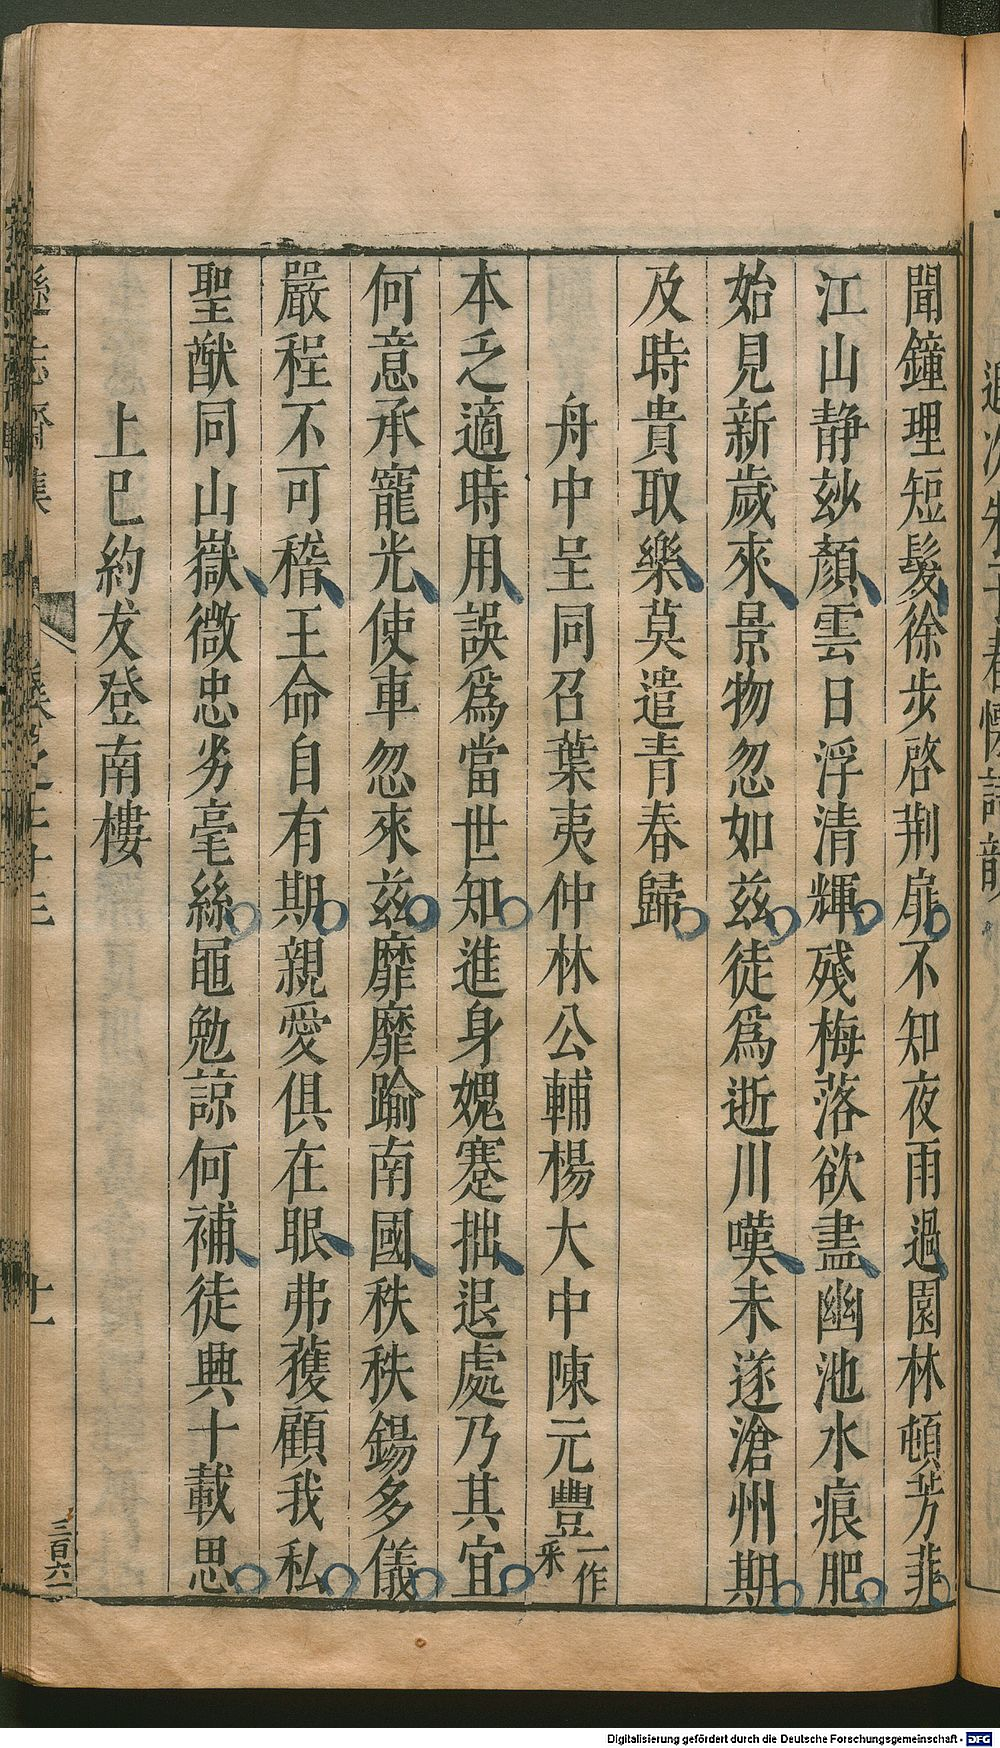 聞鐘理短髮徐步啓荆扉不知夜雨過園林頓芳菲
江山静玅顏雲日浮清輝殘梅落欲盡幽池水痕肥
始見新歲來景物忽如兹徒爲逝川嘆未遂滄州期
及時貴取樂莫遣青春歸
舟中呈同召葉夷仲林公輔楊大中陳元豐一作采
本乏適時用誤爲當世知進身媿蹇拙退處乃其宜
何意承寵光使車忽來兹靡靡踰南國秩秩錫多儀
嚴程不可稽王命自有期親愛俱在眼弗獲顧我私
聖猷同山嶽微忠劣毫絲黽勉諒何補徒興十載思
上巳約友登南樓
遜志齋集
卷之二十三
十一
三百六一
Digitalisierung gefördert durch die Deutsche Forschungsgemeinschaft - DFG